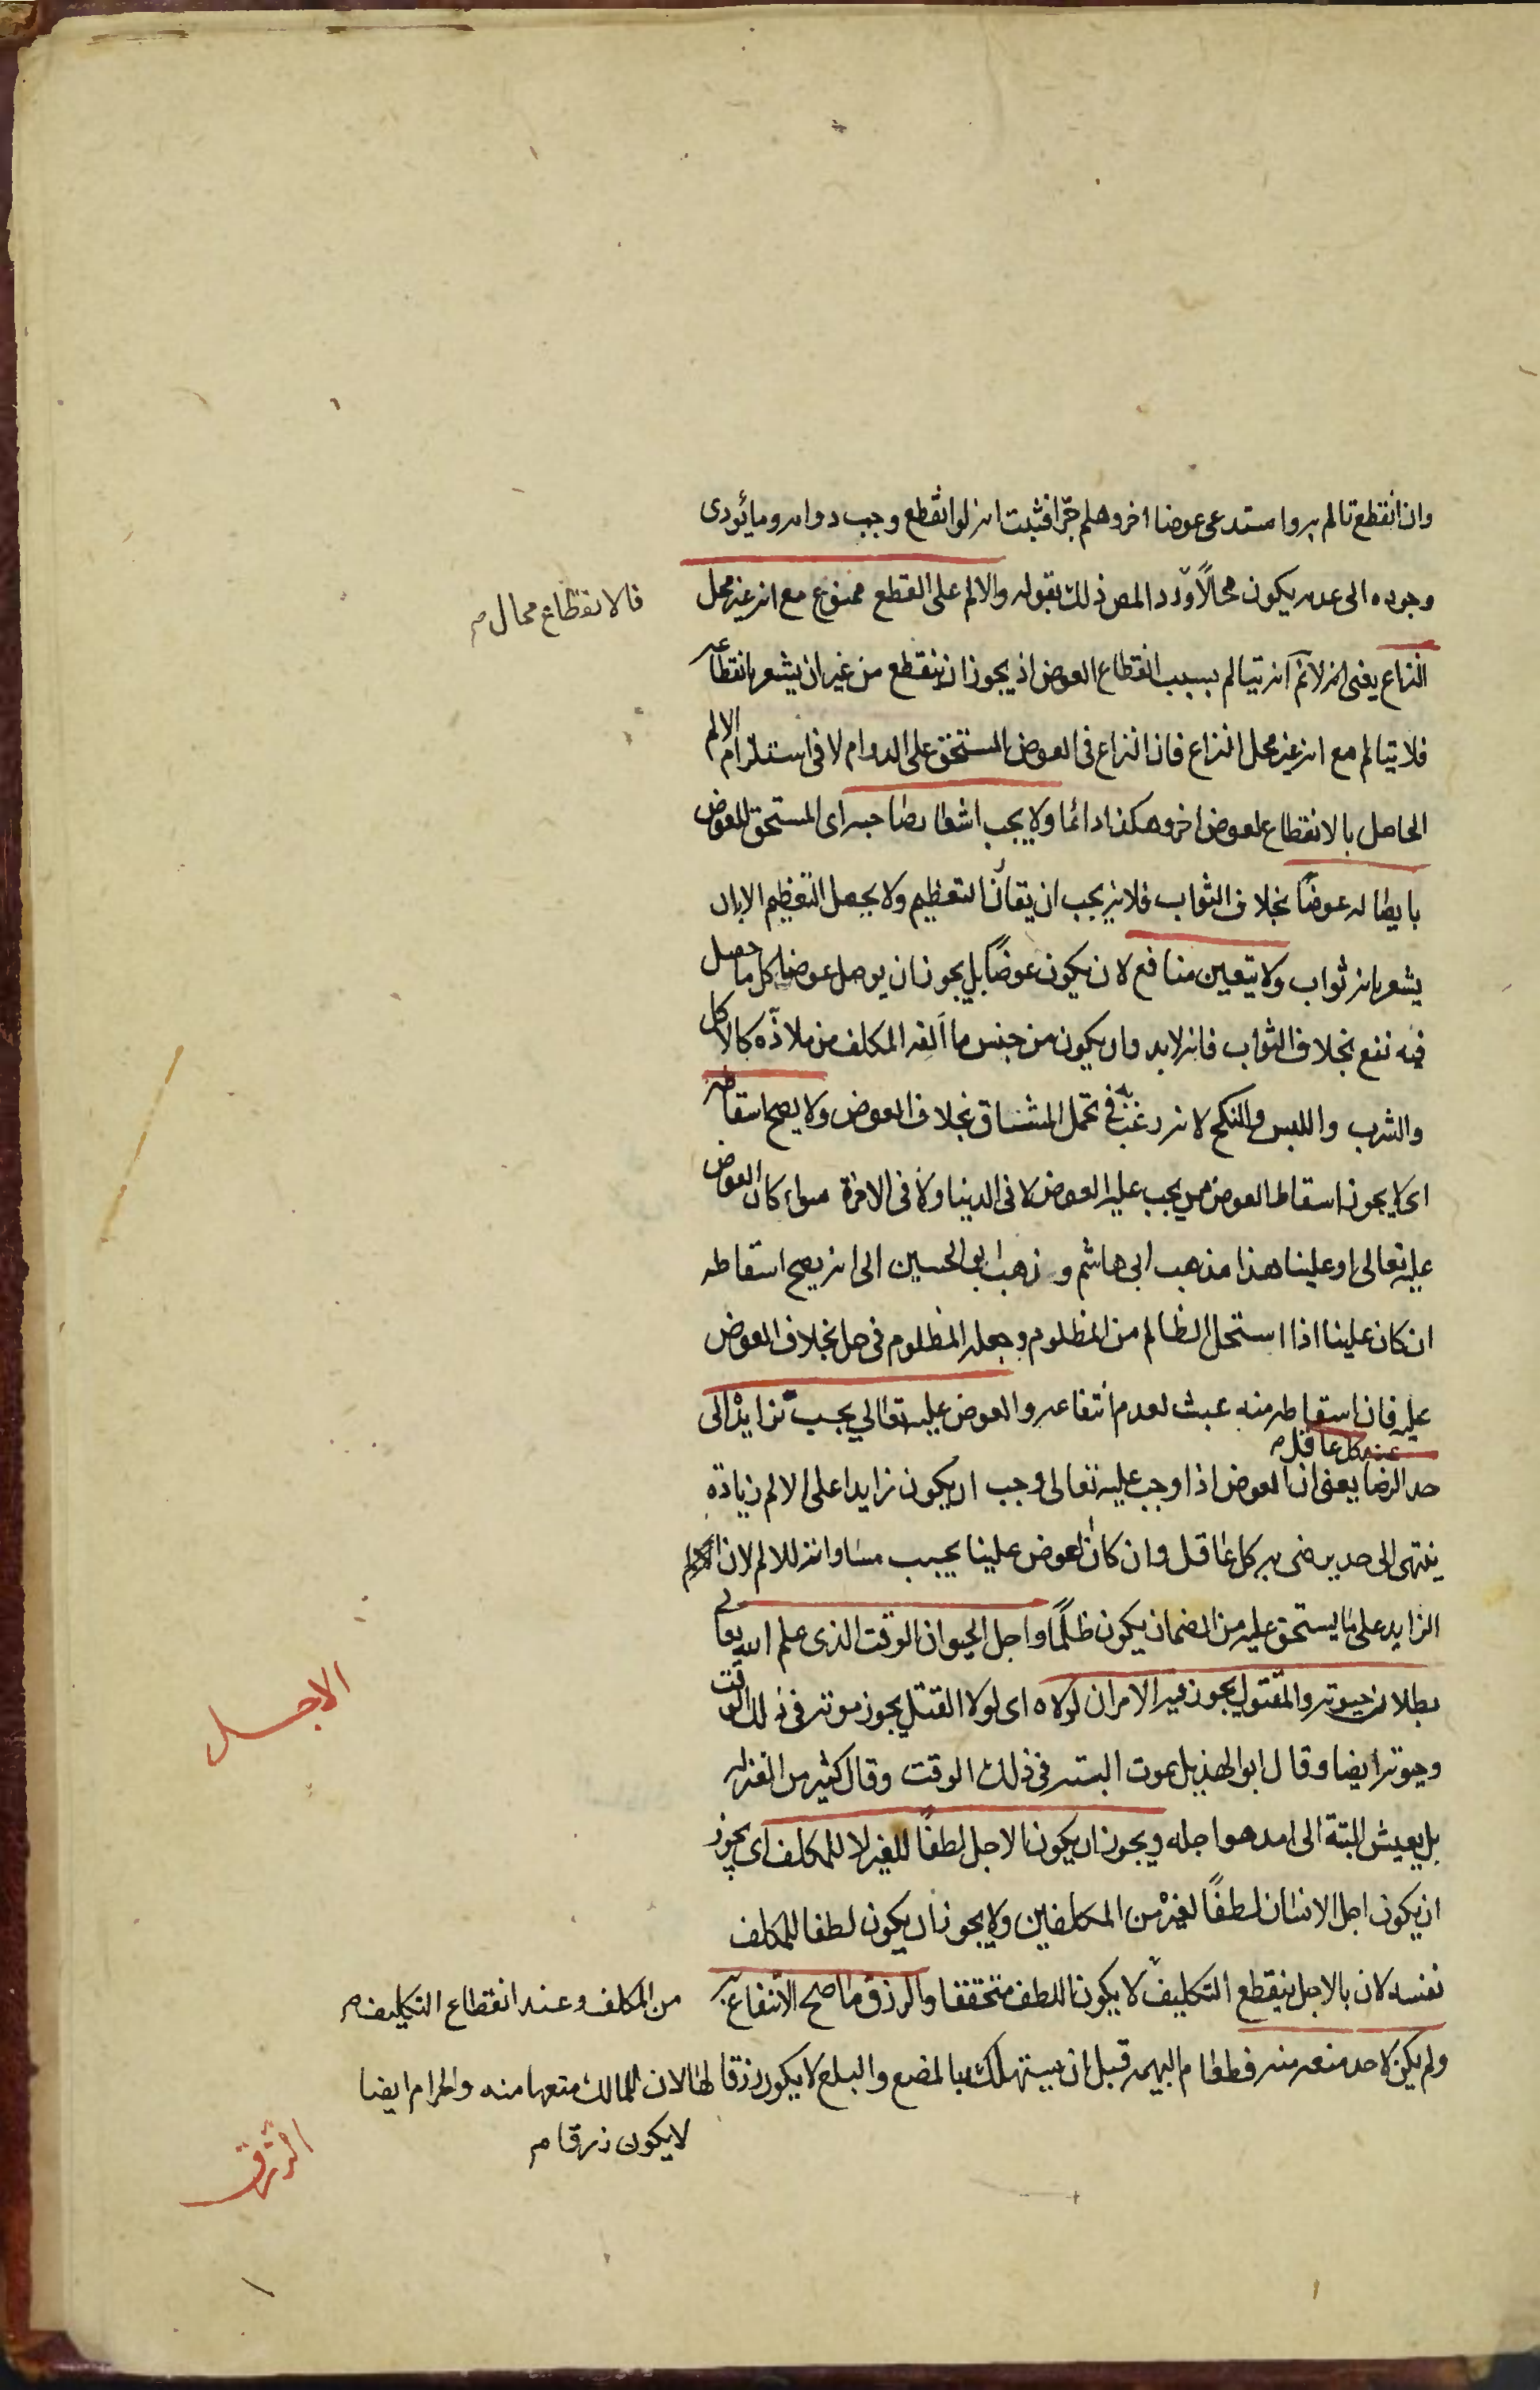 وان انقطع تالم به واستدعى عوضا اخر وهلم جرّا فثبت انه لو انقطع وجب دوامه وما يؤدى
وجوده الى عدمه يكون محالًا وّرد المص ذلك بقوله والالم على القطع ممنوع مع انه غير محل
فالانقطاع محال م
النزاع يعنى انه لانمّ انه يتالم بسبب انقطاع العوض اذ يجوز ان ينقطع من غير ان يشعر بانقطاعه
فلا يتالم مع انه غير محل النزاع فان النزاع فى العوض المستحق على الدوام لا فى استلزام الالم
الحاصل بالانقطاع لعوض اخر وهكذا دائما ولا يجب اشعار صاحبه اى المستحق للعوض
بايصاله عوضًا بخلاف الثواب فلانه يجب ان يقارن التعظيم ولا يحصل التعظيم الا بان
يشعر بانه ثواب ولا يتعين منافع لان يكون عوضًا بل يجوز ان يوصل عوضا كل ما حصل
فيه نفع بخلاف الثواب فانه لابد وان يكون من جنس ما الفه المكلف من ملاذّه كالاكل
والشرب واللبس والنكح لانه رغّب به فى تحمل المشاق بخلاف العوض ولا يصح اسقاطه
اى لا يجوز اسقاط العوض ممن يجب عليه العوض لا فى الدنيا ولا فى الاخرة سواء كان العوض
عليه تعالى او علينا هذا مذهب ابى هاشم وذهب ابو الحسين الى انه يصح اسقاطه
ان كان علينا اذا استحل الظالم من المظلوم وجعله المظلوم فى حل بخلاف العوض
عليه فان اسقاطه منه عبث لعدم انتفاعه والعوض عليه تعالي يجب تزايده الى
عند كل عاقل م
حد الرضا يعنى ان العوض اذا وجب عليه تعالى وجب ان يكون زايدا على الالم زيادة
ينتهى الى حد يرضى به كل عاقل وان كان العوض علينا يجب مساواته للالم لان الالم
الزايد على ما يستحق عليه من الضمان يكون ظلمًا واجل الحيوان الوقت الذى علم الله تعالى
الاجل
بطلان حيوته والمقتول يجوز فيه الامران لولاه اى لولا القتل يجوز موته فى ذلك الوقت
وحيوته ايضا وقال ابو الهذيل يموت البته فى ذلك الوقت وقال كثير من المعتزله
بل يعيش البتة الى امد هو اجله ويجوز ان يكون الاجل لطفًا للغير لا للمكلف اى يجوز
ان يكون اجل الانسان لطفًا لغيره من المكلفين ولا يجوز ان يكون لطفا للمكلف
نفسه لان بالاجل ينقطع التكليف لا يكون اللطف متحققا والرزق ما صح الانتفاع به
من المكلف وعند انقطاع التكليف م
ولم يكن لاحد منعه منه فطعام البهيمه قبل ان يستهلك بالمضغ والبلع لا يكون رزقا لها لان للمالك منعها منه والحرام ايضا
لا يكون رزقا م
الرزق